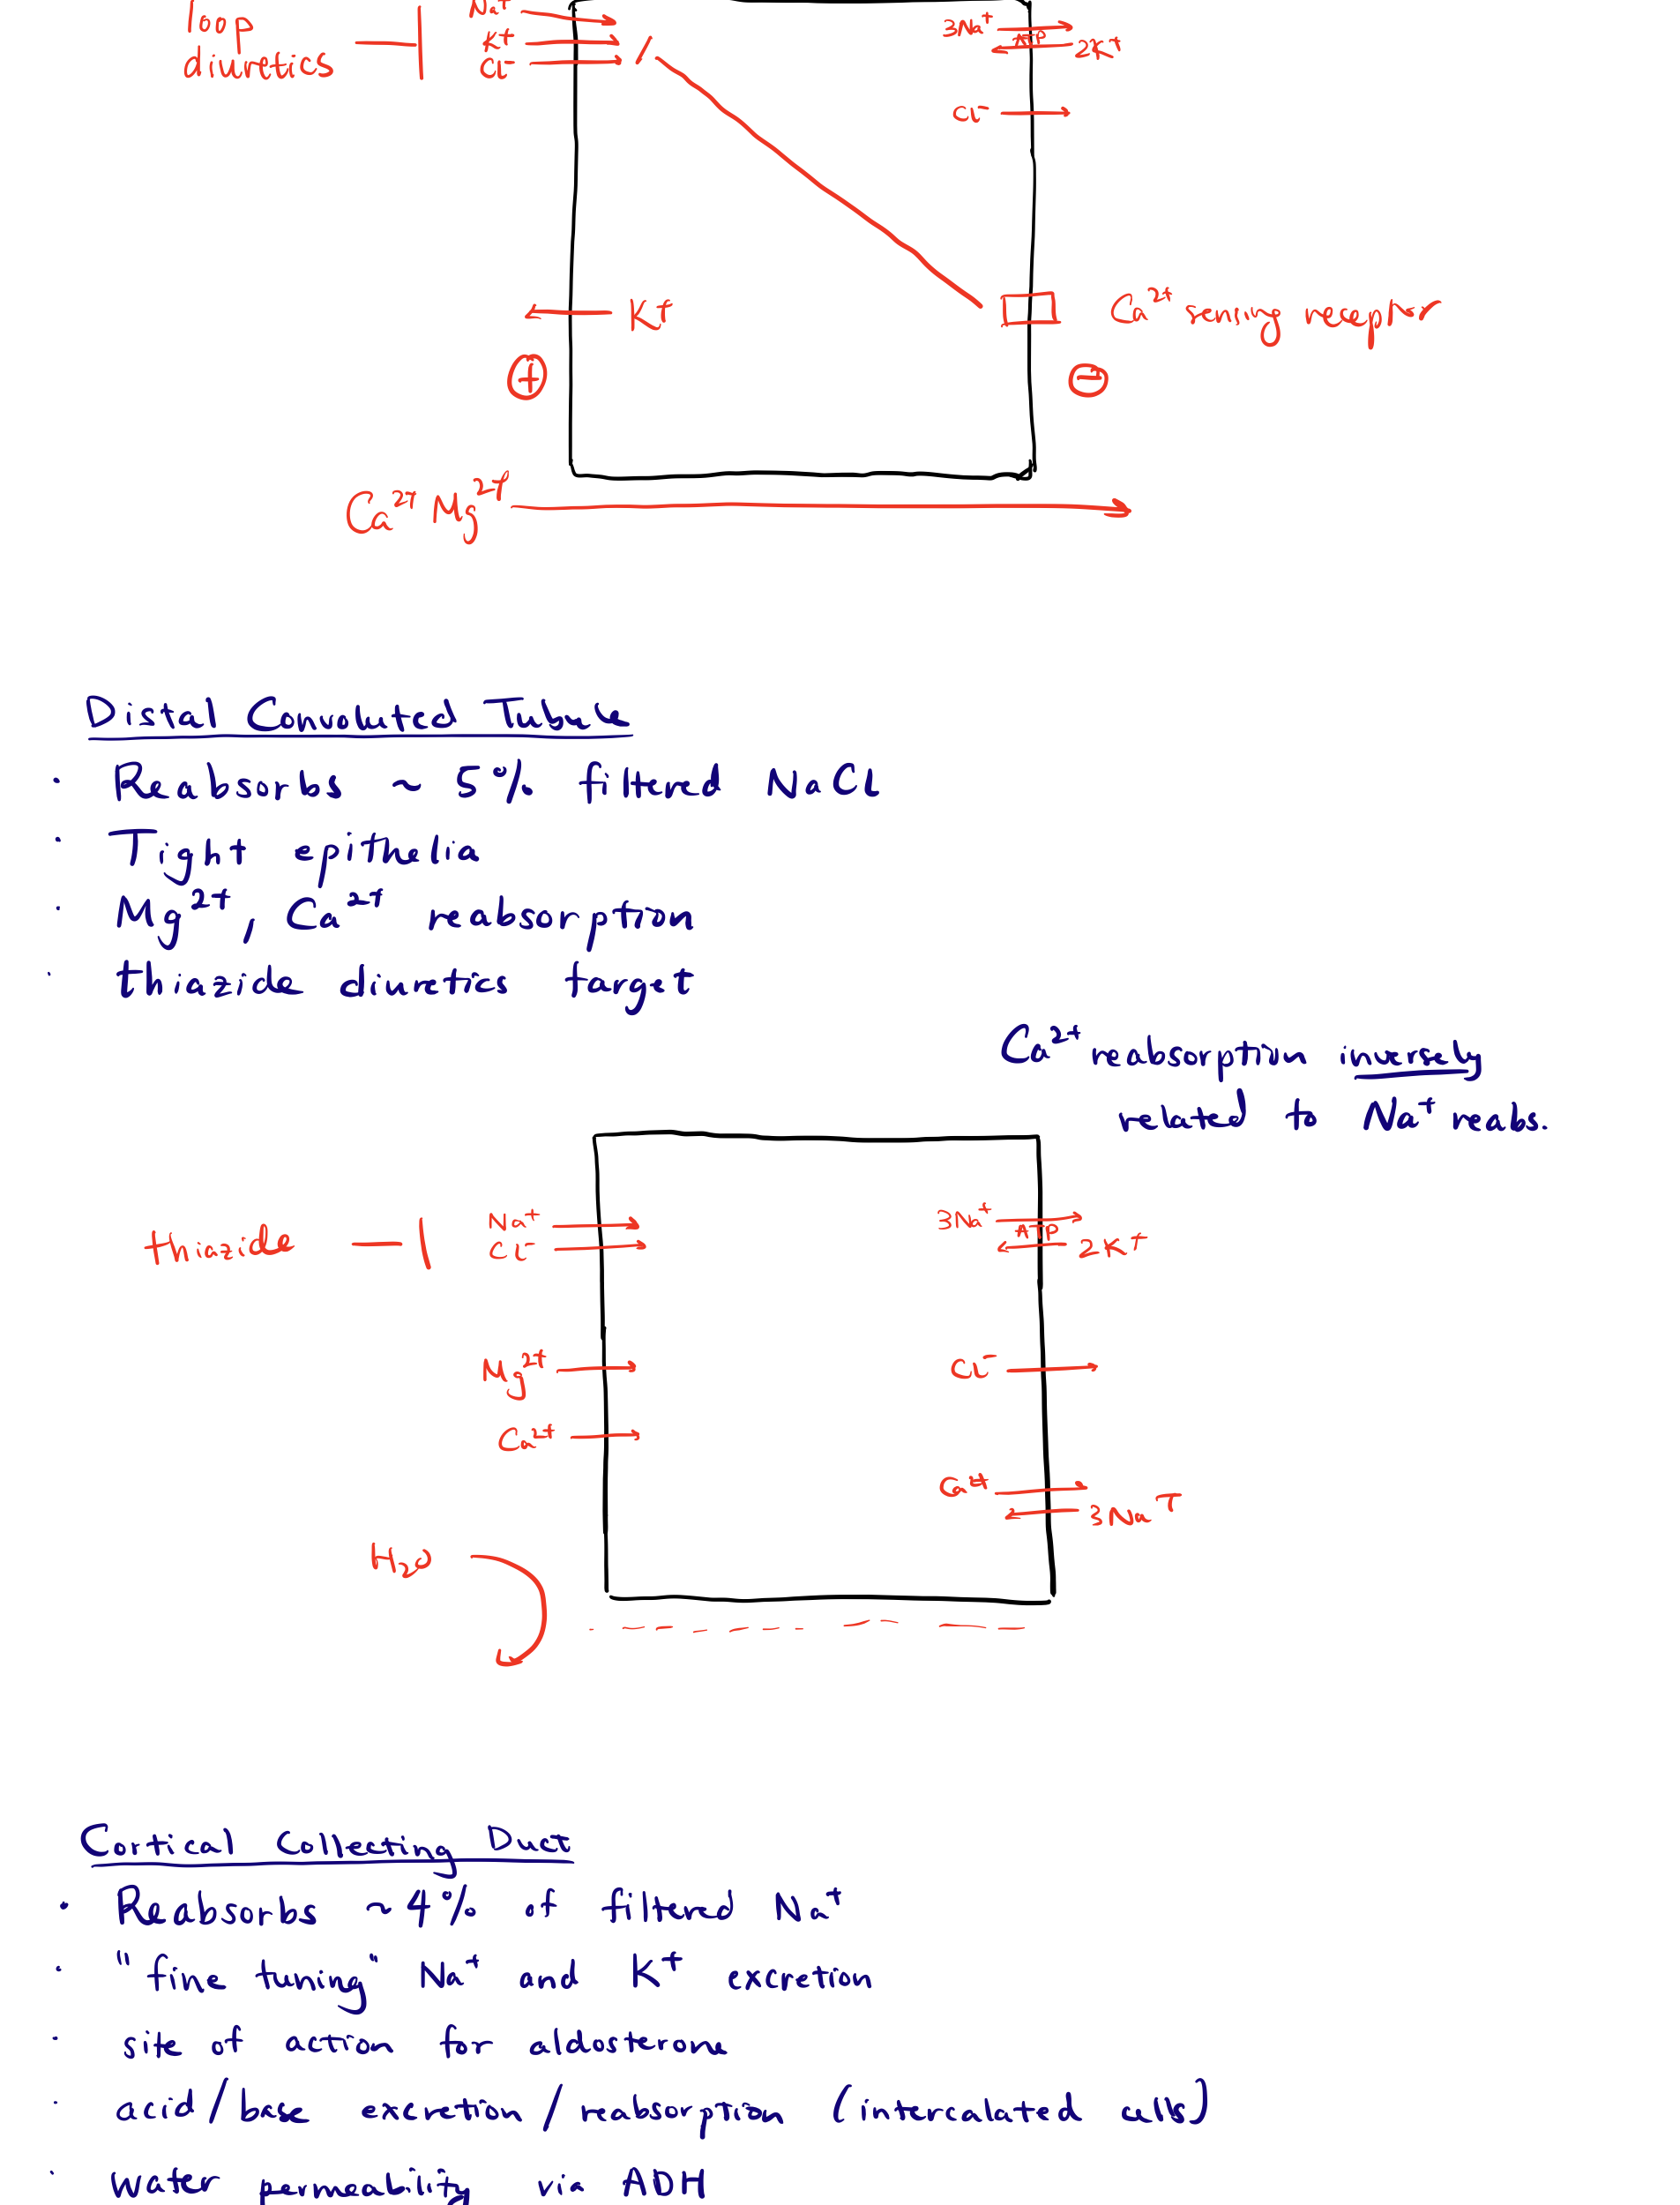 loop
diuretics
Na⁺
K⁺
Cl⁻
3Na⁺
ATP
2K⁺
Cl⁻
K⁺
Ca²⁺ sensing receptor
+
−
Ca²⁺ Mg²⁺
Distal Convoluted Tubule
· Reabsorbs ~ 5% filtered NaCl
· Tight epithelia
· Mg²⁺, Ca²⁺ reabsorption
· thiazide diuretics target
Ca²⁺ reabsorption inversely
related to Na⁺ reabs.
thiazide
Na⁺
Cl⁻
3Na⁺
ATP
2K⁺
Mg²⁺
Cl⁻
Ca²⁺
Ca²⁺
3Na⁺
H₂O
Cortical Collecting Duct
· Reabsorbs ~4% of filtered Na⁺
· "fine tuning" Na⁺ and K⁺ excretion
· site of action for aldosterone
· acid/base excretion/reabsorption (intercalated cells)
· water permeability via ADH